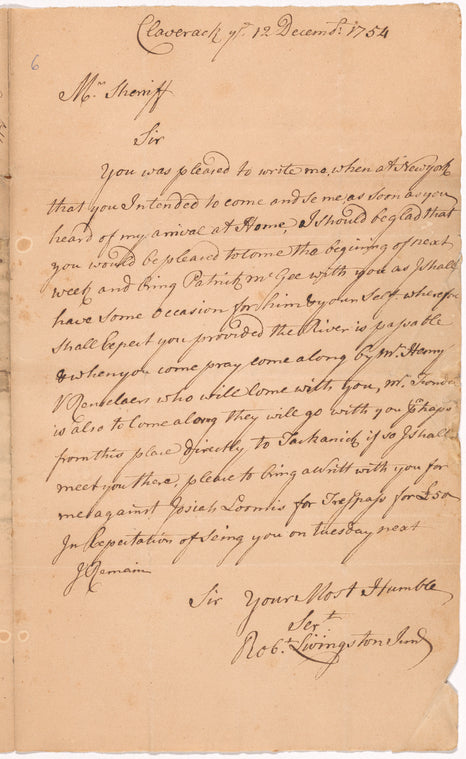 6
Claverack ye. 12 Decembr. 1754
Mr. Sherriff
Sir
You was pleased to write me, when at Newyork
that you Intended to come and se me, as soon as you
heard of my arrival at Home, I should be glad that
you would be pleased to Come the begining of next
week and bring Patrick Mc Gee with you as I shall
have some Occasion for him & your Self wherefore
shall Expect you provided the River is passable
& when you come pray come along by Mr. Henry
V Renselaers who will Come with you, Mr.
is also to Come along they will go with you
from this place directly to Tachanick if so I shall
meet you there, please to bring a Writt with you for
me against Josiah Loomis for Trespass for £50
In Expectation of Seing you on tuesday next
I Remain
Sir Your Most Humble
Sert.
Robt. Livingston Junr